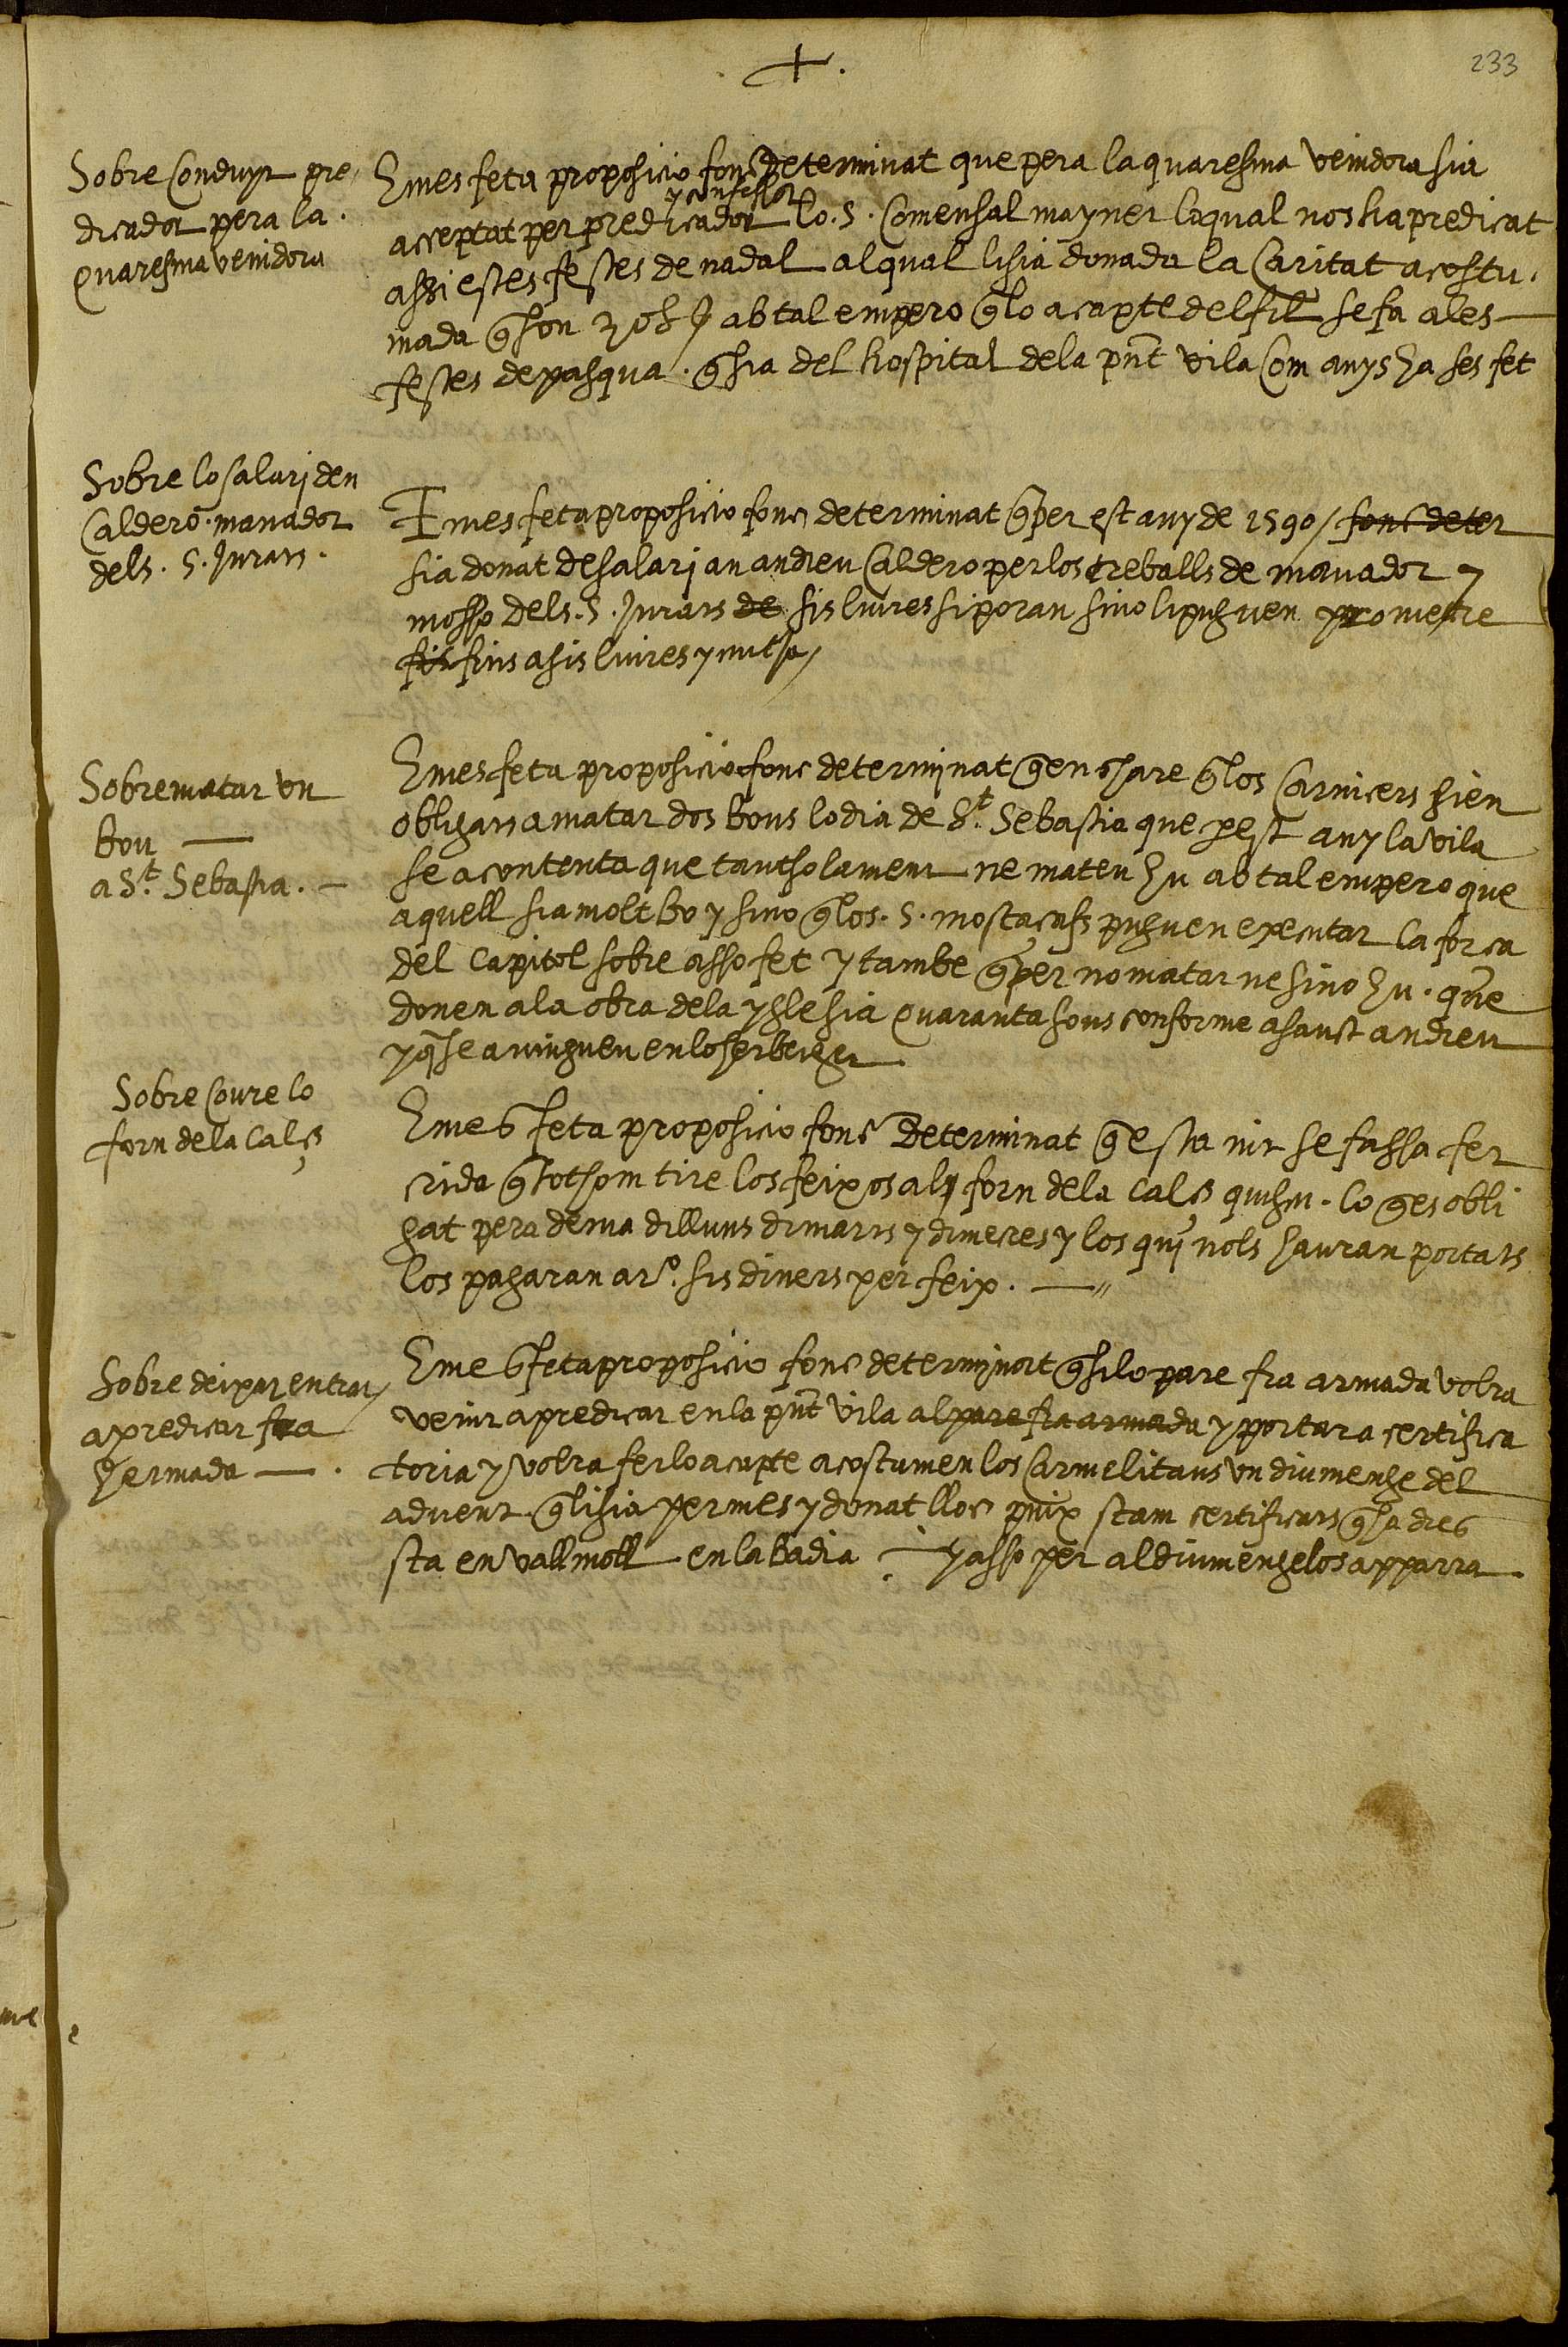 +.
233
Sobre Conduyr pre
dicador pera la.
quaresma venidora
E mes feta proposicio fonc determinat que pera la quaresma venidora sia
y confessor
acceptat per predicador lo. S. Comensal mayner loqual nos ha predicat
assi estes festes de nadal al qual lisia donada la Caritat acostu
mada q̄ son ab tal empero q̄ lo acapte del fil se fa a les
festes de pasqua. q̄ sia del hospital dela pñt vila Com anys ha ses fet
Sobre lo salari den
Caldero. manador
dels. S. Jurats.
E mes feta proposicio fonc determinat q̄ per est any de 1590 / fonc deter
sia donat de salari an andreu Caldero per los treballs de manador y
mosso dels. S. Jurats de sis liures si poran sino li puguen prometre
fis fins a sis liures y mitja /
Sobre matar un
bou
a S.t Sebastia.
E mes feta proposicio fonc determinat q̄ encara q̄ los Carnicers sien
obligats a matar dos bous lo dia de S.t Sebastia que p est any la vila
se acontenta que tantsolament ne maten hu ab tal empero que
aquell sia molt bo y sino q̄ los. S. mostaçafs puguen executar la forca
del Capitol sobre asso fet y tambe q̄ per no matarne sino hu. que
donen a la obra dela yglesia quaranta sous conforme a sanct andreu
y q̄ se avinguen en lo herbatger
Sobre Coure lo
forn dela Cals
E mes feta proposicio fonc Determinat q̄ esta nit se fassa fer
crida q̄ tothom tire los feixos al forn dela Cals quiscu. lo q̄ es obli
gat pera dema dilluns dimarts y dimecres y los qui nols hauran portats
los pagaran a ro. sis diners per feix.
Sobre deixar entrar
a predicar fra
Hermada
E mes feta proposicio fonc determinat q̄ si lo pare fra armada volra
venir a predicar en la pñt vila al pare fra armada y portara certifica
toria y volra fer lo acapte acostumen los Carmelitans un diumenge del
advent. q̄ li sia permes y donat lloc puix stam certificats q̄ ha dies
sta en vallmoll en la badia y asso per al diumenge los apparra